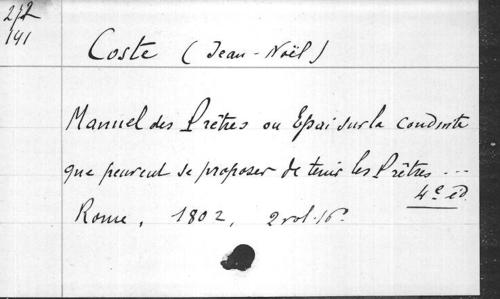 2/2
141
Coste (Jean-Noël)
Manuel des Prêtres ou Essai sur la conduite
que peuvent se proposer de tenir les Prêtres ...
4e éd.
Rome, 1802, 2 vol. 16°